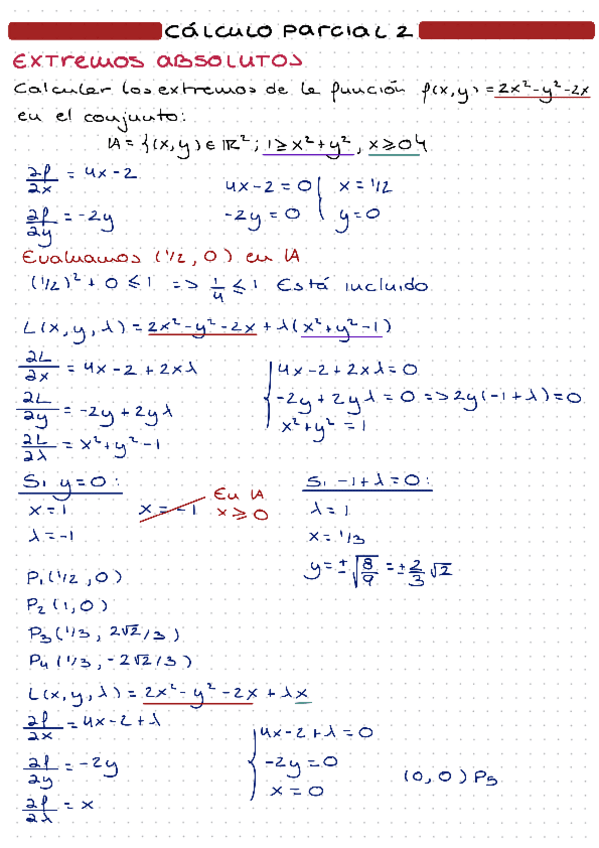 CÁLCULO PARCIAL 2
EXTREMOS ABSOLUTOS
Calcular los extremos de la función f(x,y) = 2x²-y²-2x
en el conjunto:
A = {(x,y) ∈ ℝ² ; 1 ≥ x²+y² , x ≥ 0}
∂f/∂x = 4x-2
4x-2 = 0 | x = 1/2
∂f/∂y = -2y
-2y = 0 | y = 0
Evaluamos (1/2, 0) en A
(1/2)² + 0 ≤ 1 => 1/4 ≤ 1 Está incluido
L(x,y,λ) = 2x²-y²-2x + λ(x²+y²-1)
∂L/∂x = 4x-2+2xλ
4x-2+2xλ = 0
∂L/∂y = -2y+2yλ
-2y+2yλ = 0 => 2y(-1+λ) = 0
∂L/∂λ = x²+y²-1
x²+y² = 1
Si y = 0:
x = 1
x = -1
En A
x ≥ 0
λ = -1
Si -1+λ = 0:
λ = 1
x = 1/3
y = ±√(8/9) = ±2/3 √2
P₁(1/2, 0)
P₂(1, 0)
P₃(1/3, 2√2/3)
P₄(1/3, -2√2/3)
L(x,y,λ) = 2x²-y²-2x + λx
∂f/∂x = 4x-2+λ
4x-2+λ = 0
∂f/∂y = -2y
-2y = 0
∂f/∂λ = x
x = 0
(0,0) P₅